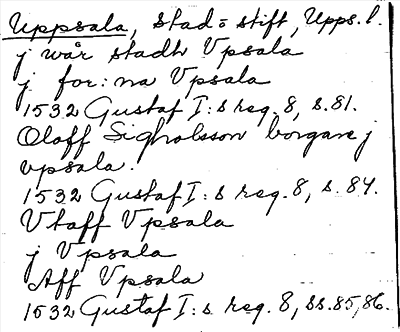 Uppsala, stad = stift, Upps. l.
j wår stadh Vpsala
j for:na Vpsala
1532 Gustaf I:s reg. 8, s. 81.
Oloff Sigholsson borgare j
vpsala.
1532 Gustaf I:s reg. 8, s. 84.
Vtaff Vpsala
j Vpsala
Aff Vpsala
1532 Gustaf I:s reg. 8, ss. 85, 86.